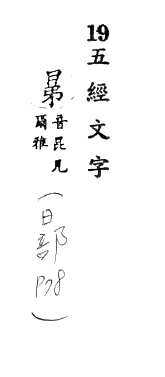 19五經文字
晜音昆見
爾雅
(日部P78)